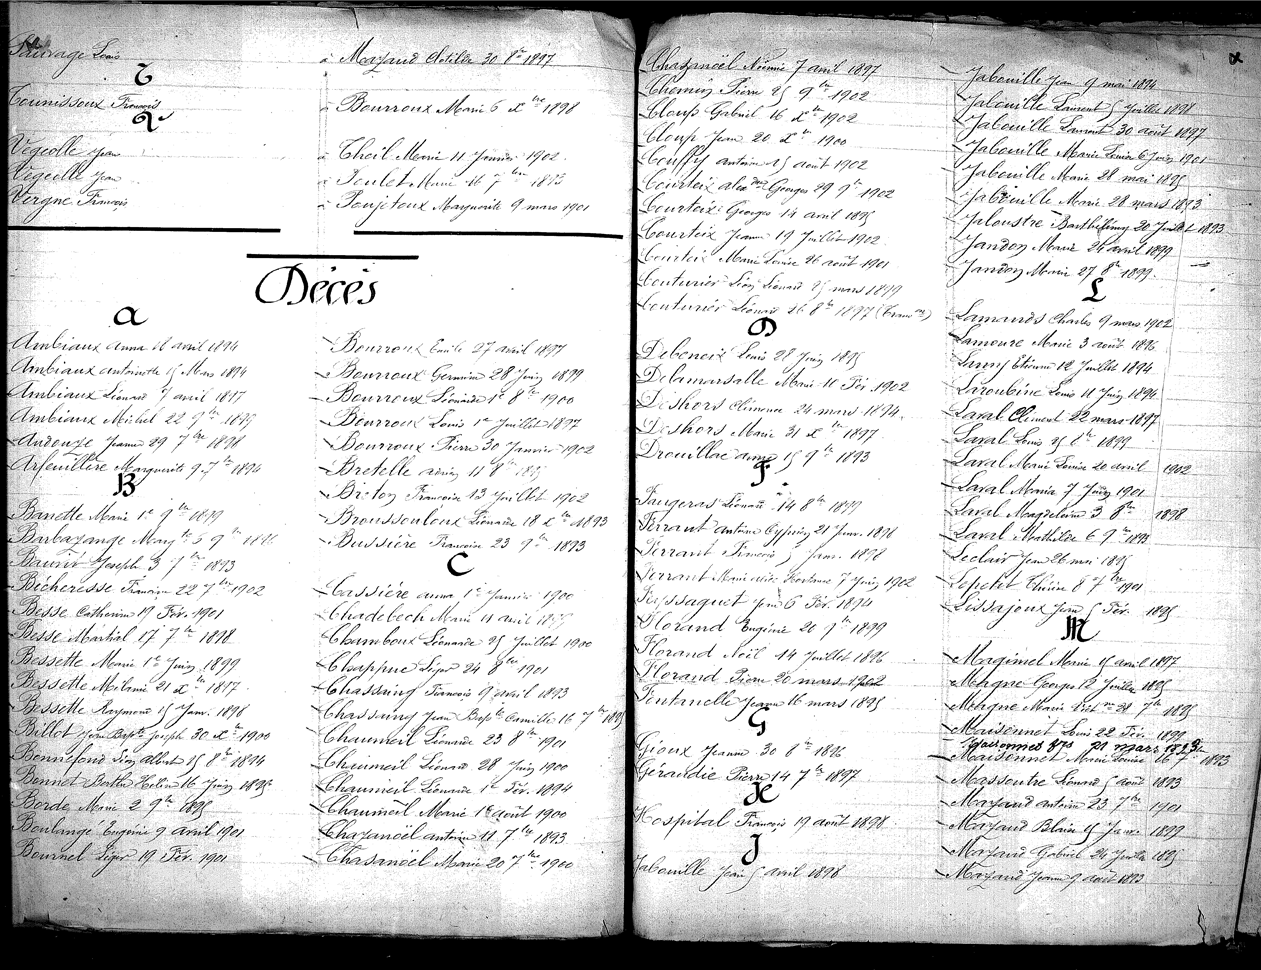 Sauvage Louis à Mazaud Clotilde 30 8re 1897
T
Tounissoux François à Bourroux Marie 6 Xbre 1898
V
Végeolle Jean à Theil Marie 11 Janvier 1902
Végeolle Jean à Poulet Marie 16 7bre 1893
Vergne François à Poujetoux Marguerite 9 mars 1901
Décès
A
Ambiaux Anna 16 avril 1894
Ambiaux Antoinette 15 Mars 1894
Ambiaux Léonard 7 avril 1897
Ambiaux Michel 22 9bre 1899
Andouze Jeanne 29 7bre 1898
Arfeuillère Marguerite 9 7bre 1894
B
Banette Marie 1er 9bre 1899
Barbazange Margte 5 9bre
Baurir Joseph 3 7bre 1893
Bécheresse Françoise 22 7bre 1902
Besse Catherine 19 Fév. 1901
Besse Martial 17 7bre 1898
Bessette Marie 1er Juin 1899
Bessette Mélanie 21 Xbre 1897
Bessette Raymond 15 Janv. 1898
Billot Jean Bapte Joseph 30 Xbre 1900
Bonnefond Léon Albert 15 8bre 1894
Bonnet Berthe Hélène 16 Juin 1895
Borde Marie 2 9bre 1895
Boulangé Eugénie 9 avril 1901
Bournel Léger 19 Fév. 1901
Bourroux Emile 27 avril 1897
Bourroux Germain 28 Juin 1899
Bourroux Léonarde 1er 8bre 1900
Bourroux Louis 1er Juillet 1897
Bourroux Pierre 30 Janvier 1902
Bretelle Adrien 11 8bre
Breton Françoise 13 Juillet 1902
Broussouloux Léonarde 18 Xbre 1893
Bussière Françoise 23 9bre 1893
C
Cassière Anna 1er Janvier 1900
Chadebech Marie 11 avril
Chamboux Léonarde 25 Juillet 1900
Chappue Léger 24 8bre 1901
Chassaing François 9 avril 1893
Chassaing Jean Bapte Camille 16 7bre 1895
Chaumeil Léonarde 23 8bre 1901
Chaumeil Léonard 28 Juin 1900
Chaumeil Léonarde 1er Fév. 1894
Chaumeil Marie 1er août 1900
Chazanoël Antoine 11 7bre 1893
Chasanoël Marie 20 7bre 1900
Chazanoël Noémie 7 avril 1897
Chemin Pierre 25 9bre 1902
Cloup Gabriel 16 Xbre 1902
Cloup Jean 20 Xbre 1900
Couffy Antoine 25 août 1902
Courteix Alexdre Georges 29 9bre 1902
Courteix Georges 14 avril 1895
Courteix Jeanne 19 Juillet 1902
Courteix Marie Louise 26 août 1901
Couturier Léon Léonard 25 mars 1899
Couturier Léonard 16 8bre 1897
D
Debeneix Louis 28 Juin 1895
Delamarsalle Marie 10 Fév. 1902
Deshors Clémence 24 mars 1894
Deshors Marie 31 Xbre 1897
Drouillac Anna 15 9bre 1893
F
Faugeras Léonard 14 8bre 1899
Ferrant Antoine Cyprien 21 Janv. 1896
Ferrant François 5 Janv. 1898
Ferrant Marie 7 Juin 1902
Feyssaguet Jean 6 Fév. 1894
Florand Eugénie 20 9bre 1899
Florand Noël 14 Juillet 1896
Florand Pierre 20 mars 1902
Fontanelle Jeanne 16 mars 1895
G
Gioux Jeanne 30 8bre 1896
Géraudie Pierre 14 7bre 1897
H
Hospital François 19 août 1898
J
Jabouille Jean 5 avril 1898
Jabouille Jean 9 mai 1894
Jabouille Laurent 5 Juillet 1898
Jabouille Laurent 30 août 1897
Jabouille Marie Louise 6 Juin 1901
Jabouille Marie 28 mai 1895
Jabouille Marie 28 mars 1893
Jaloustre Barthélémy 20 Juillet 1893
Jandon Marie 26 avril 1899
Jandon Marie 27 8bre 1899
L
Lamards Charles 9 mars 1902
Lamoure Marie 3 août 1896
Lanny Etienne 12 Juillet 1894
Laroubine Louis 11 Juin 1894
Laval Clément 22 mars 1897
Laval Louis 25 8bre 1899
Laval Marie Louise 20 avril 1902
Laval Maria 7 Juin 1901
Laval Magdeleine 3 8bre 1898
Laval Mathilde 6 9bre 1893
Leclair Jean 26 mai 1895
Lepetit 8 7bre 1901
Lissajoux Jean 5 Fév. 1895
M
Magimel Marie 15 avril 1897
Maigne Georges 12 Juillet 1895
Maigne Marie 28 7bre 1895
Maisonnet Louis 22 Fév. 1899
Maisonnet Marie Louise 16 7bre 1893
Massoutre Léonard 5 août 1893
Mazaud Antoine 23 7bre 1901
Mazaud Blaise 15 Janv. 1899
Mazaud Gabriel 24 Juillet 1895
Mazaud Jeanne 9 août 1893